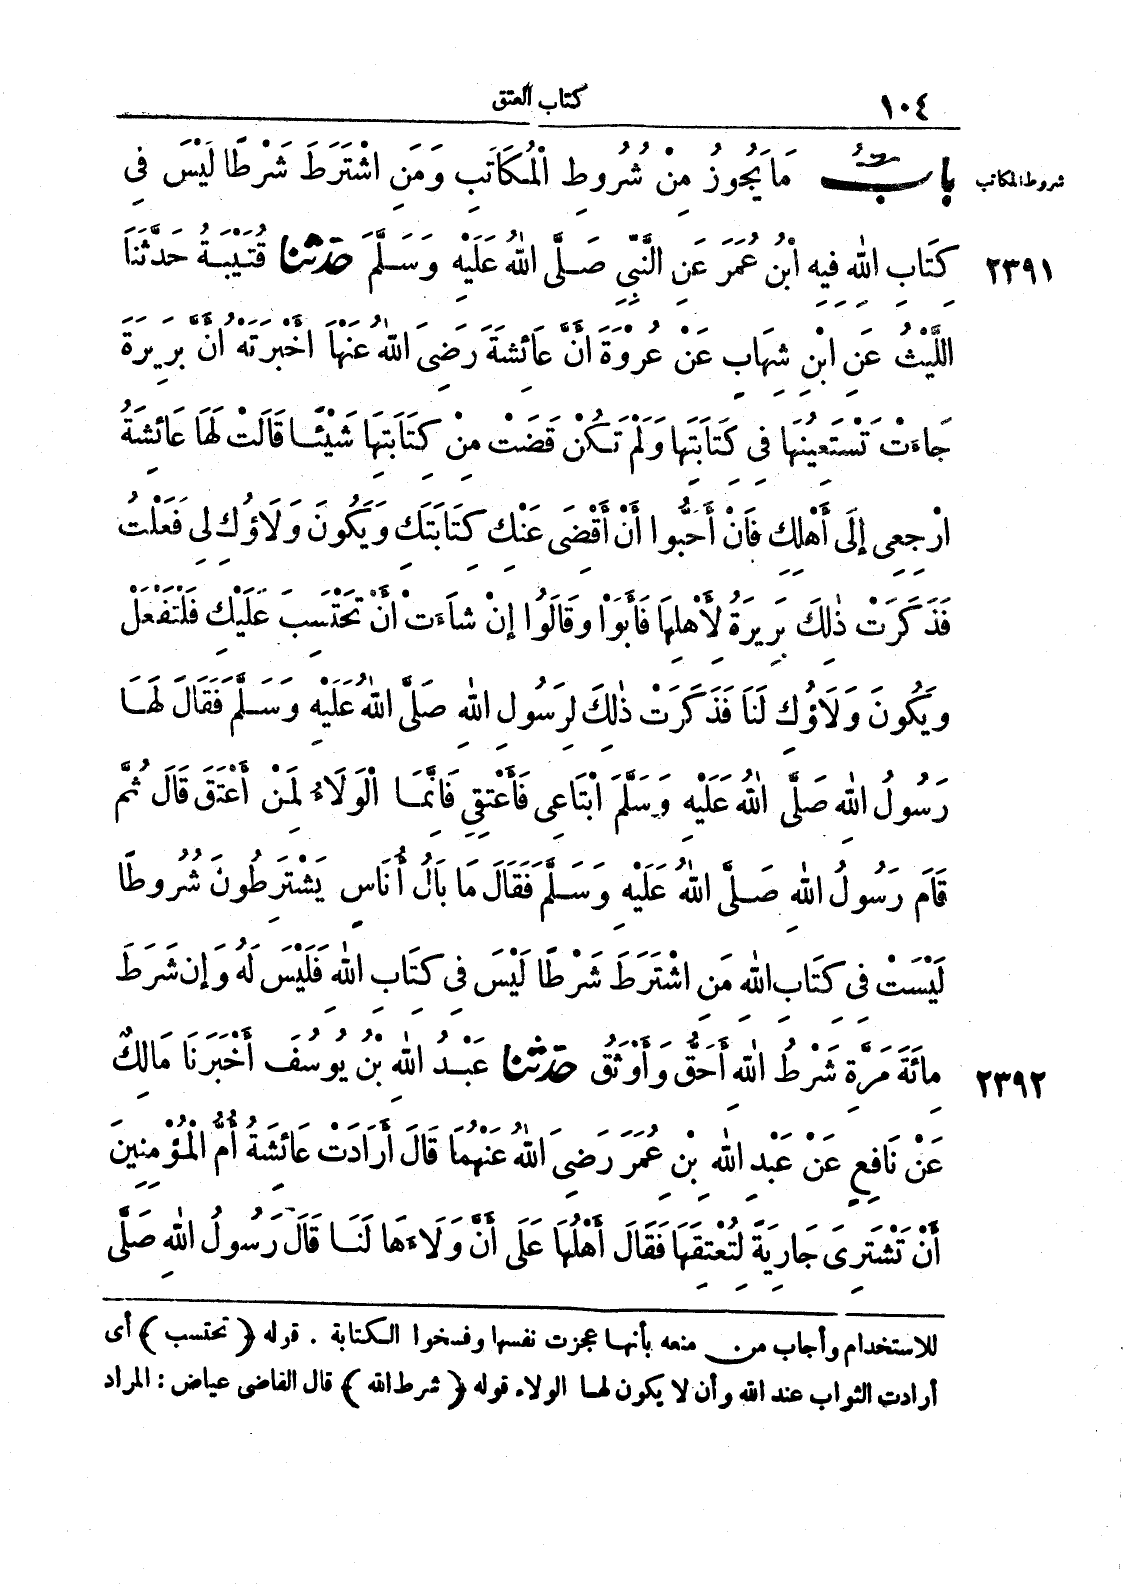 ١٠٤ كتاب العتق
شروط المكاتب
بَابُ مَا يَجُوزُ مِنْ شُرُوطِ الْمُكَاتَبِ وَمَنِ اشْتَرَطَ شَرْطًا لَيْسَ فِى
٢٣٩١ كِتَابِ اللهِ فِيهِ ابْنُ عُمَرَ عَنِ النَّبِىِّ صَلَّى اللهُ عَلَيْهِ وَسَلَّمَ حَدَّثَنَا قُتَيْبَةُ حَدَّثَنَا
اللَّيْثُ عَنِ ابْنِ شِهَابٍ عَنْ عُرْوَةَ أَنَّ عَائِشَةَ رَضِىَ اللهُ عَنْهَا أَخْبَرَتْهُ أَنَّ بَرِيرَةَ
جَاءَتْ تَسْتَعِينُهَا فِى كِتَابَتِهَا وَلَمْ تَكُنْ قَضَتْ مِنْ كِتَابَتِهَا شَيْئًا قَالَتْ لَهَا عَائِشَةُ
ارْجِعِى إِلَى أَهْلِكِ فَانْ أَحَبُّوا أَنْ أَقْضِىَ عَنْكِ كِتَابَتَكِ وَيَكُونَ وَلَاؤُكِ لِى فَعَلْتُ
فَذَكَرَتْ ذٰلِكَ بَرِيرَةُ لِأَهْلِهَا فَأَبَوْا وَقَالُوا إِنْ شَاءَتْ أَنْ تَحْتَسِبَ عَلَيْكِ فَلْتَفْعَلْ
وَيَكُونَ وَلَاؤُكِ لَنَا فَذَكَرَتْ ذٰلِكَ لِرَسُولِ اللهِ صَلَّى اللهُ عَلَيْهِ وَسَلَّمَ فَقَالَ لَهَا
رَسُولُ اللهِ صَلَّى اللهُ عَلَيْهِ وَسَلَّمَ ابْتَاعِى فَأَعْتِقِى فَانَّمَا الْوَلَاءُ لِمَنْ أَعْتَقَ قَالَ ثُمَّ
قَامَ رَسُولُ اللهِ صَلَّى اللهُ عَلَيْهِ وَسَلَّمَ فَقَالَ مَا بَالُ أُنَاسٍ يَشْتَرِطُونَ شُرُوطًا
لَيْسَتْ فِى كِتَابِ اللهِ مَنِ اشْتَرَطَ شَرْطًا لَيْسَ فِى كِتَابِ اللهِ فَلَيْسَ لَهُ وَإِن شَرَطَ
٢٣٩٢ مِائَةَ مَرَّةٍ شَرْطُ اللهِ أَحَقُّ وَأَوْثَقُ حَدَّثَنَا عَبْدُ اللهِ بْنُ يُوسُفَ أَخْبَرَنَا مَالِكٌ
عَنْ نَافِعٍ عَنْ عَبْدِ اللهِ بْنِ عُمَرَ رَضِىَ اللهُ عَنْهُمَا قَالَ أَرَادَتْ عَائِشَةُ أُمُّ الْمُؤْمِنِينَ
أَنْ تَشْتَرِىَ جَارِيَةً لِتُعْتِقَهَا فَقَالَ أَهْلُهَا عَلَى أَنَّ وَلَاءَهَا لَنَا قَالَ رَسُولُ اللهِ صَلَّى
للاستخدام وأجاب من منعه بأنها عجزت نفسها وفسخوا الكتابة . قوله ﴿تحتسب﴾ أى
أرادت الثواب عند الله وأن لا يكون لها الولاء قوله ﴿شرط الله﴾ قال القاضى عياض : المراد